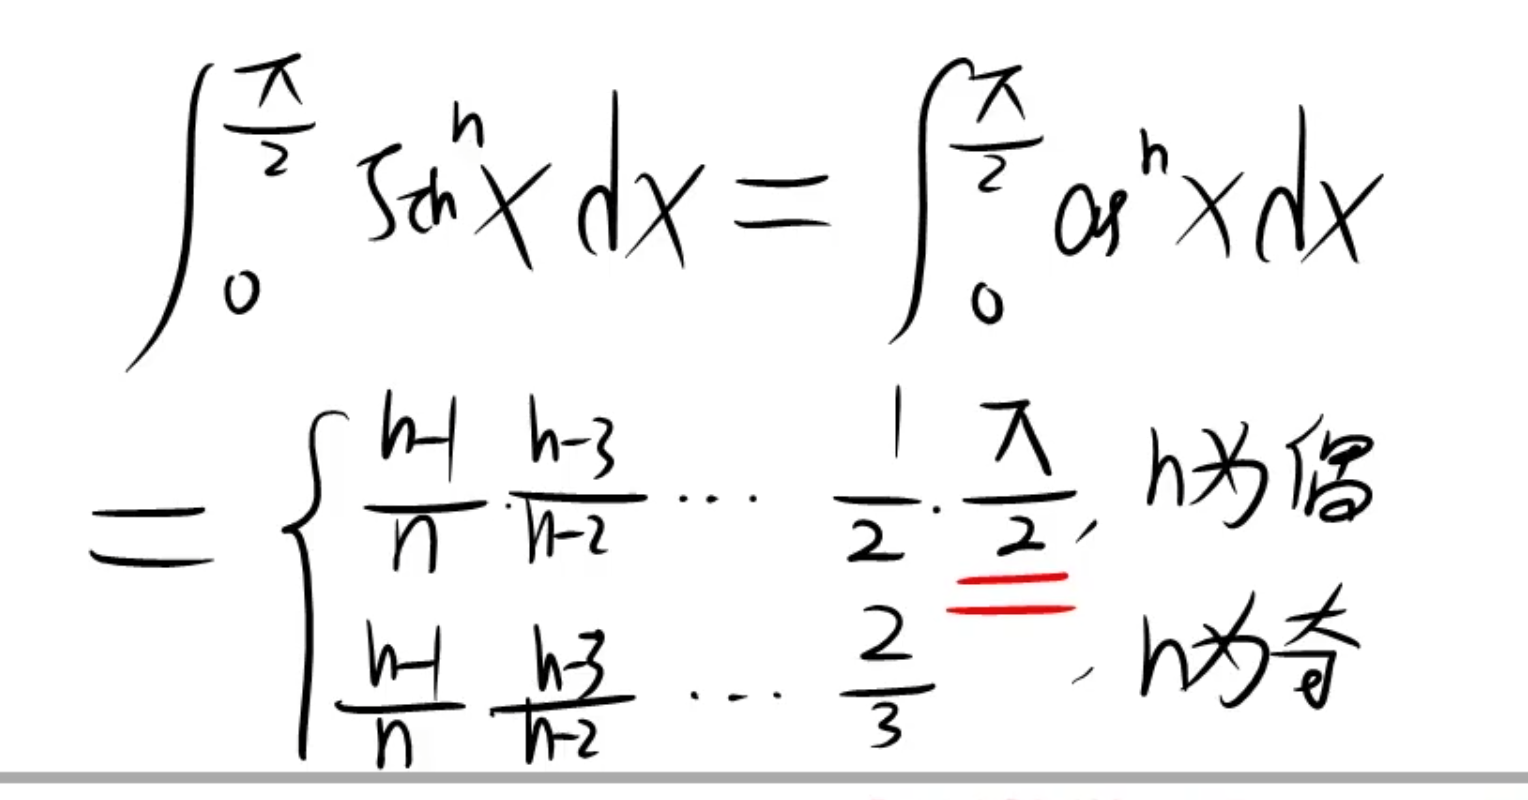 ∫_0^{π/2} sin^n x dx = ∫_0^{π/2} cos^n x dx
= { (n-1)/n · (n-3)/(n-2) ··· 1/2 · π/2, n为偶
(n-1)/n (n-3)/(n-2) ··· 2/3, n为奇